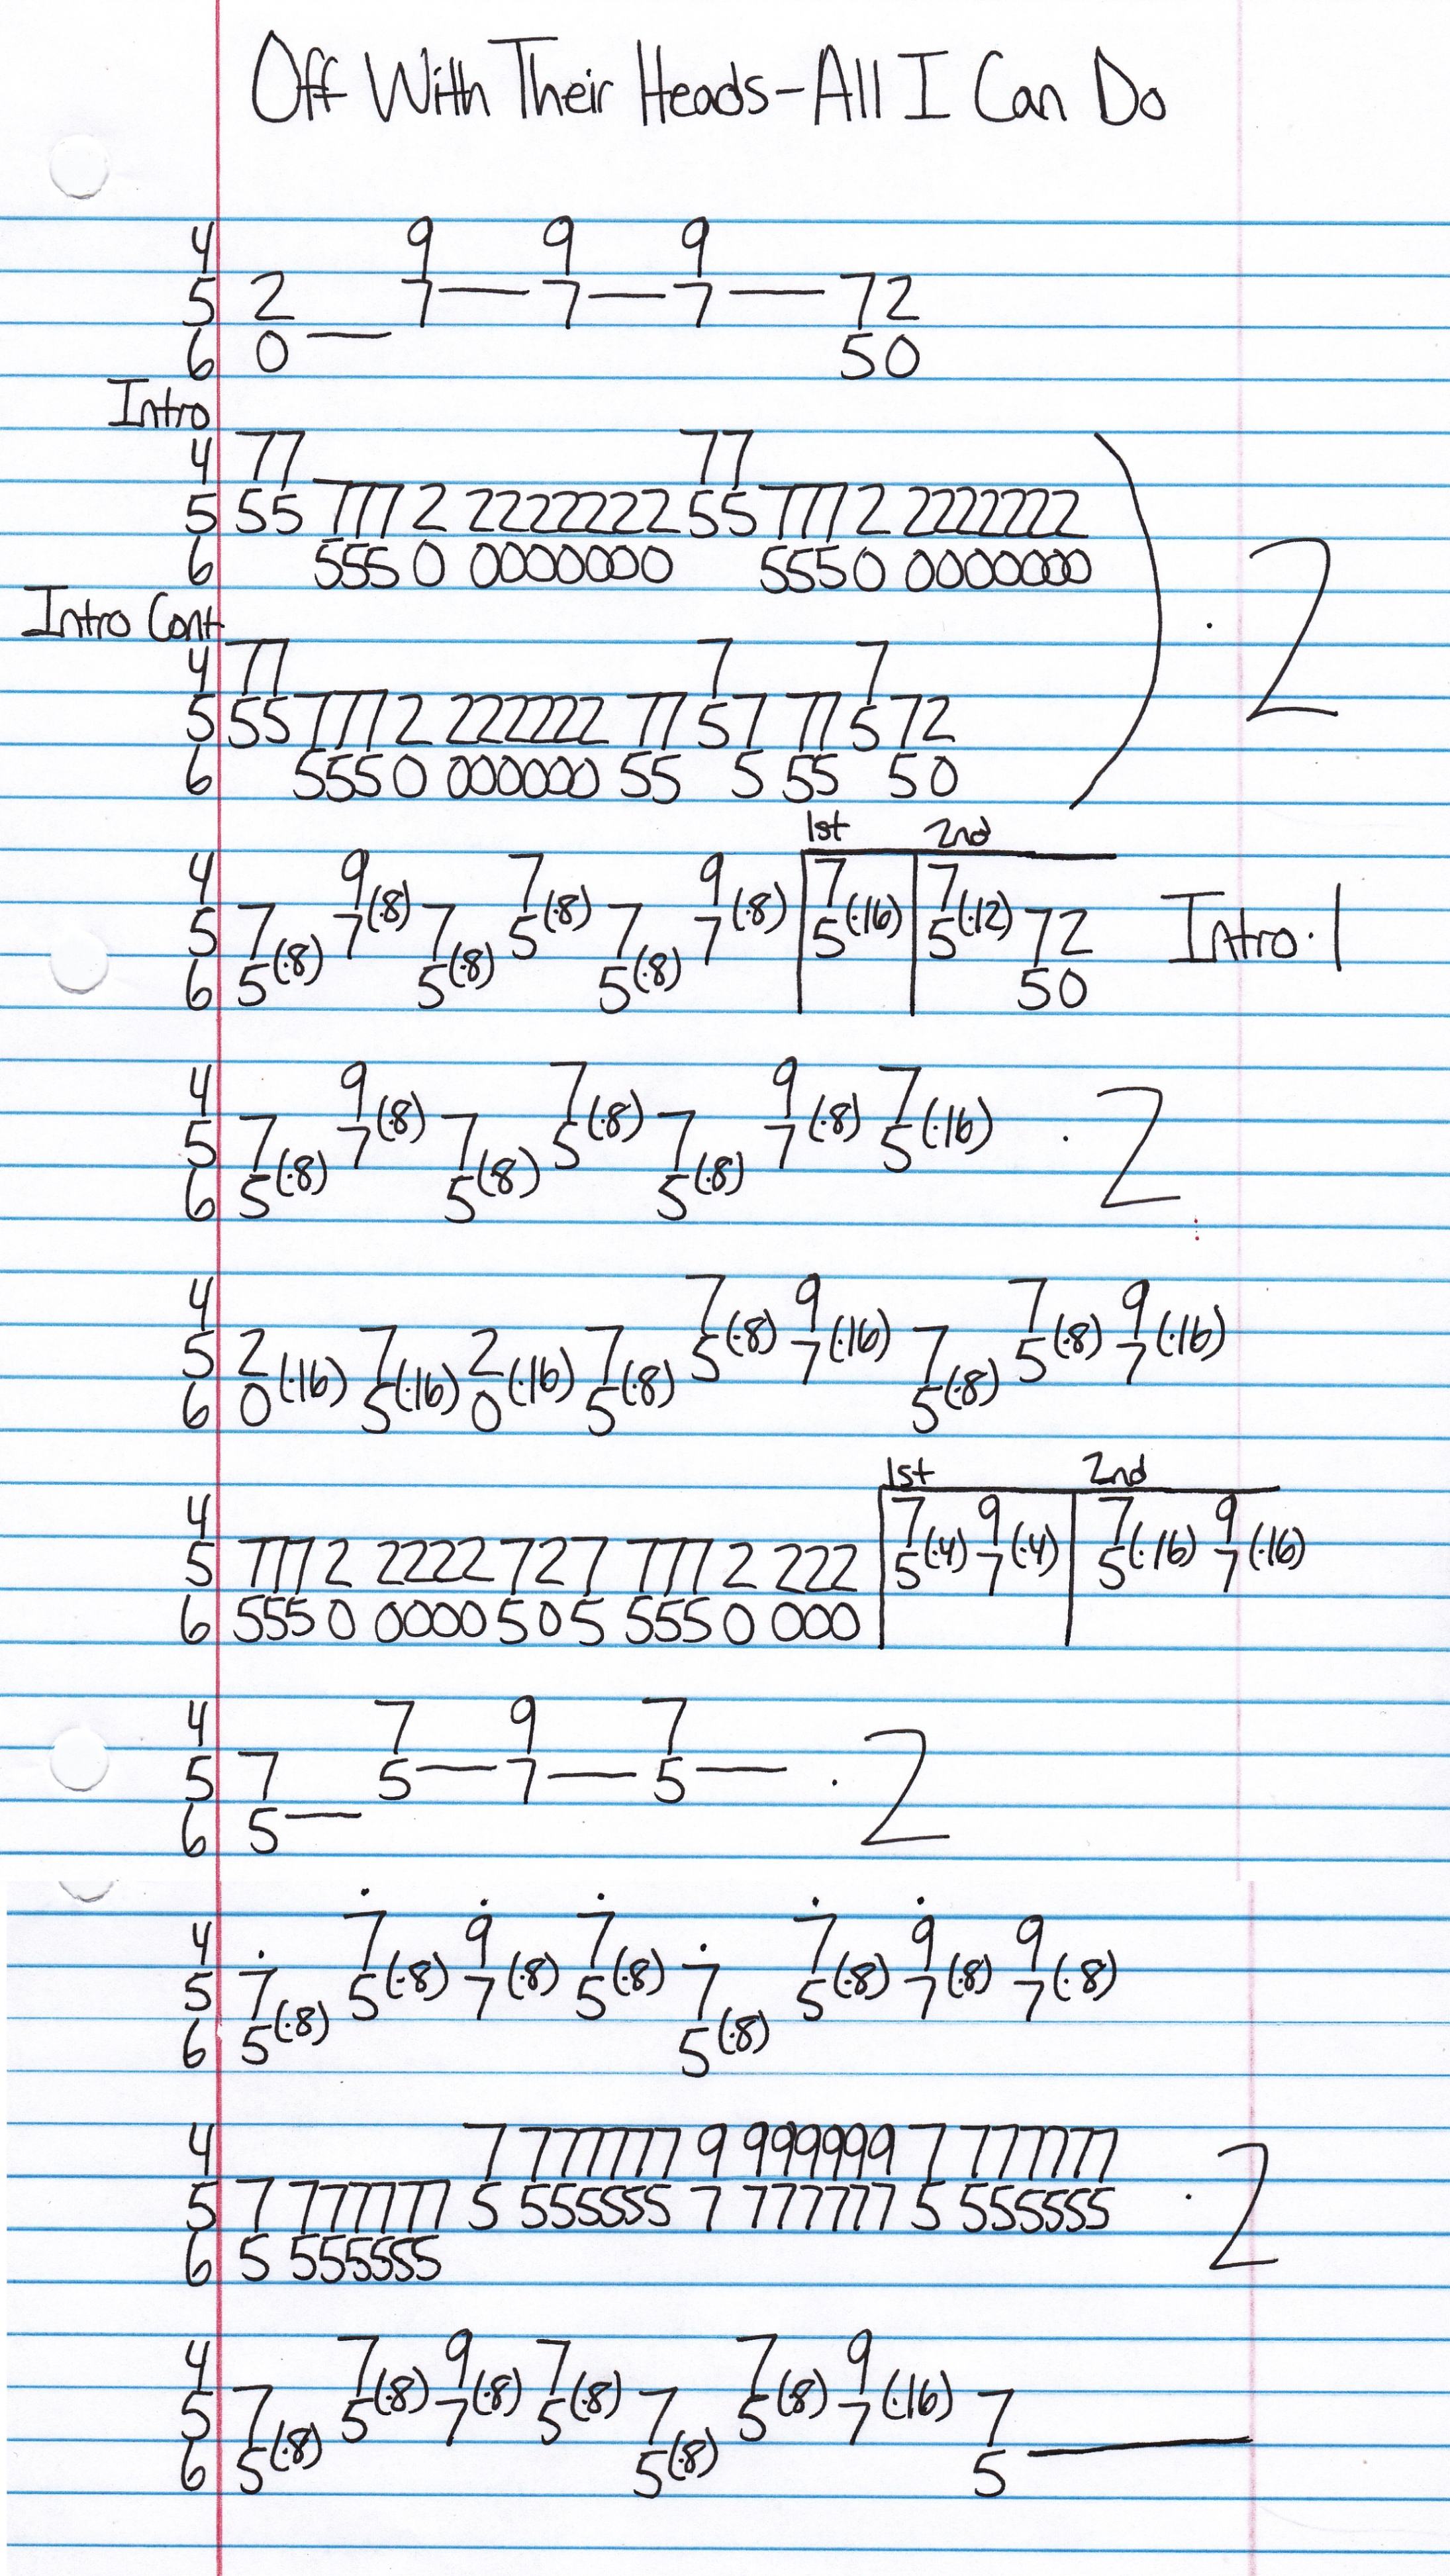 Off With Their Heads-All I Can Do
4 9 9 9
5 2 7— 7— 7— 72
6 0— 50
Intro
4 77 77
5 55 777 2 2222222 55 777 2 222222
6 555 0 0000000 555 0 0000000
·2
Intro Cont
4 77 7 7
5 55 777 2 222222 77 5 7 77 5 72
6 555 0 000000 55 5 55 50
1st 2nd
4 9 7 9 7 7
5 7 7(·8) 7 5(·8) 7 7(·8) 5(·16) 5(·12) 72 Intro·1
6 5(·8) 5(·8) 5(·8) 50
4 9 7 9 7
5 7 7(·8) 7 5(·8) 7 7(·8) 5(·16) ·2
6 5(·8) 5(·8) 5(·8)
4 7 9 7 9
5 2 7 2 7 5(·8) 7(·16) 7 5(·8) 7(·16)
6 0(·16) 5(·16) 0(·16) 5(·8) 5(·8)
1st 2nd
4 7 9 7 9
5 777 2 2222 727 777 2 222 5(·4) 7(·4) 5(·16) 7(·16)
6 555 0 0000 505 555 0 000
4 7 9 7
5 7 5— 7— 5— ·2
6 5—
4 7 9 7 7 9 9
5 7 5(·8) 7(·8) 5(·8) 7 5(·8) 7(·8) 7(·8)
6 5(·8) 5(·8)
4 7 777777 9 999999 7 777777
5 7 777777 5 555555 7 777777 5 555555 ·2
6 5 555555
4 7 9 7 7 9
5 7 5(·8) 7(·8) 5(·8) 7 5(·8) 7(·16) 7
6 5(·8) 5(·8) 5—